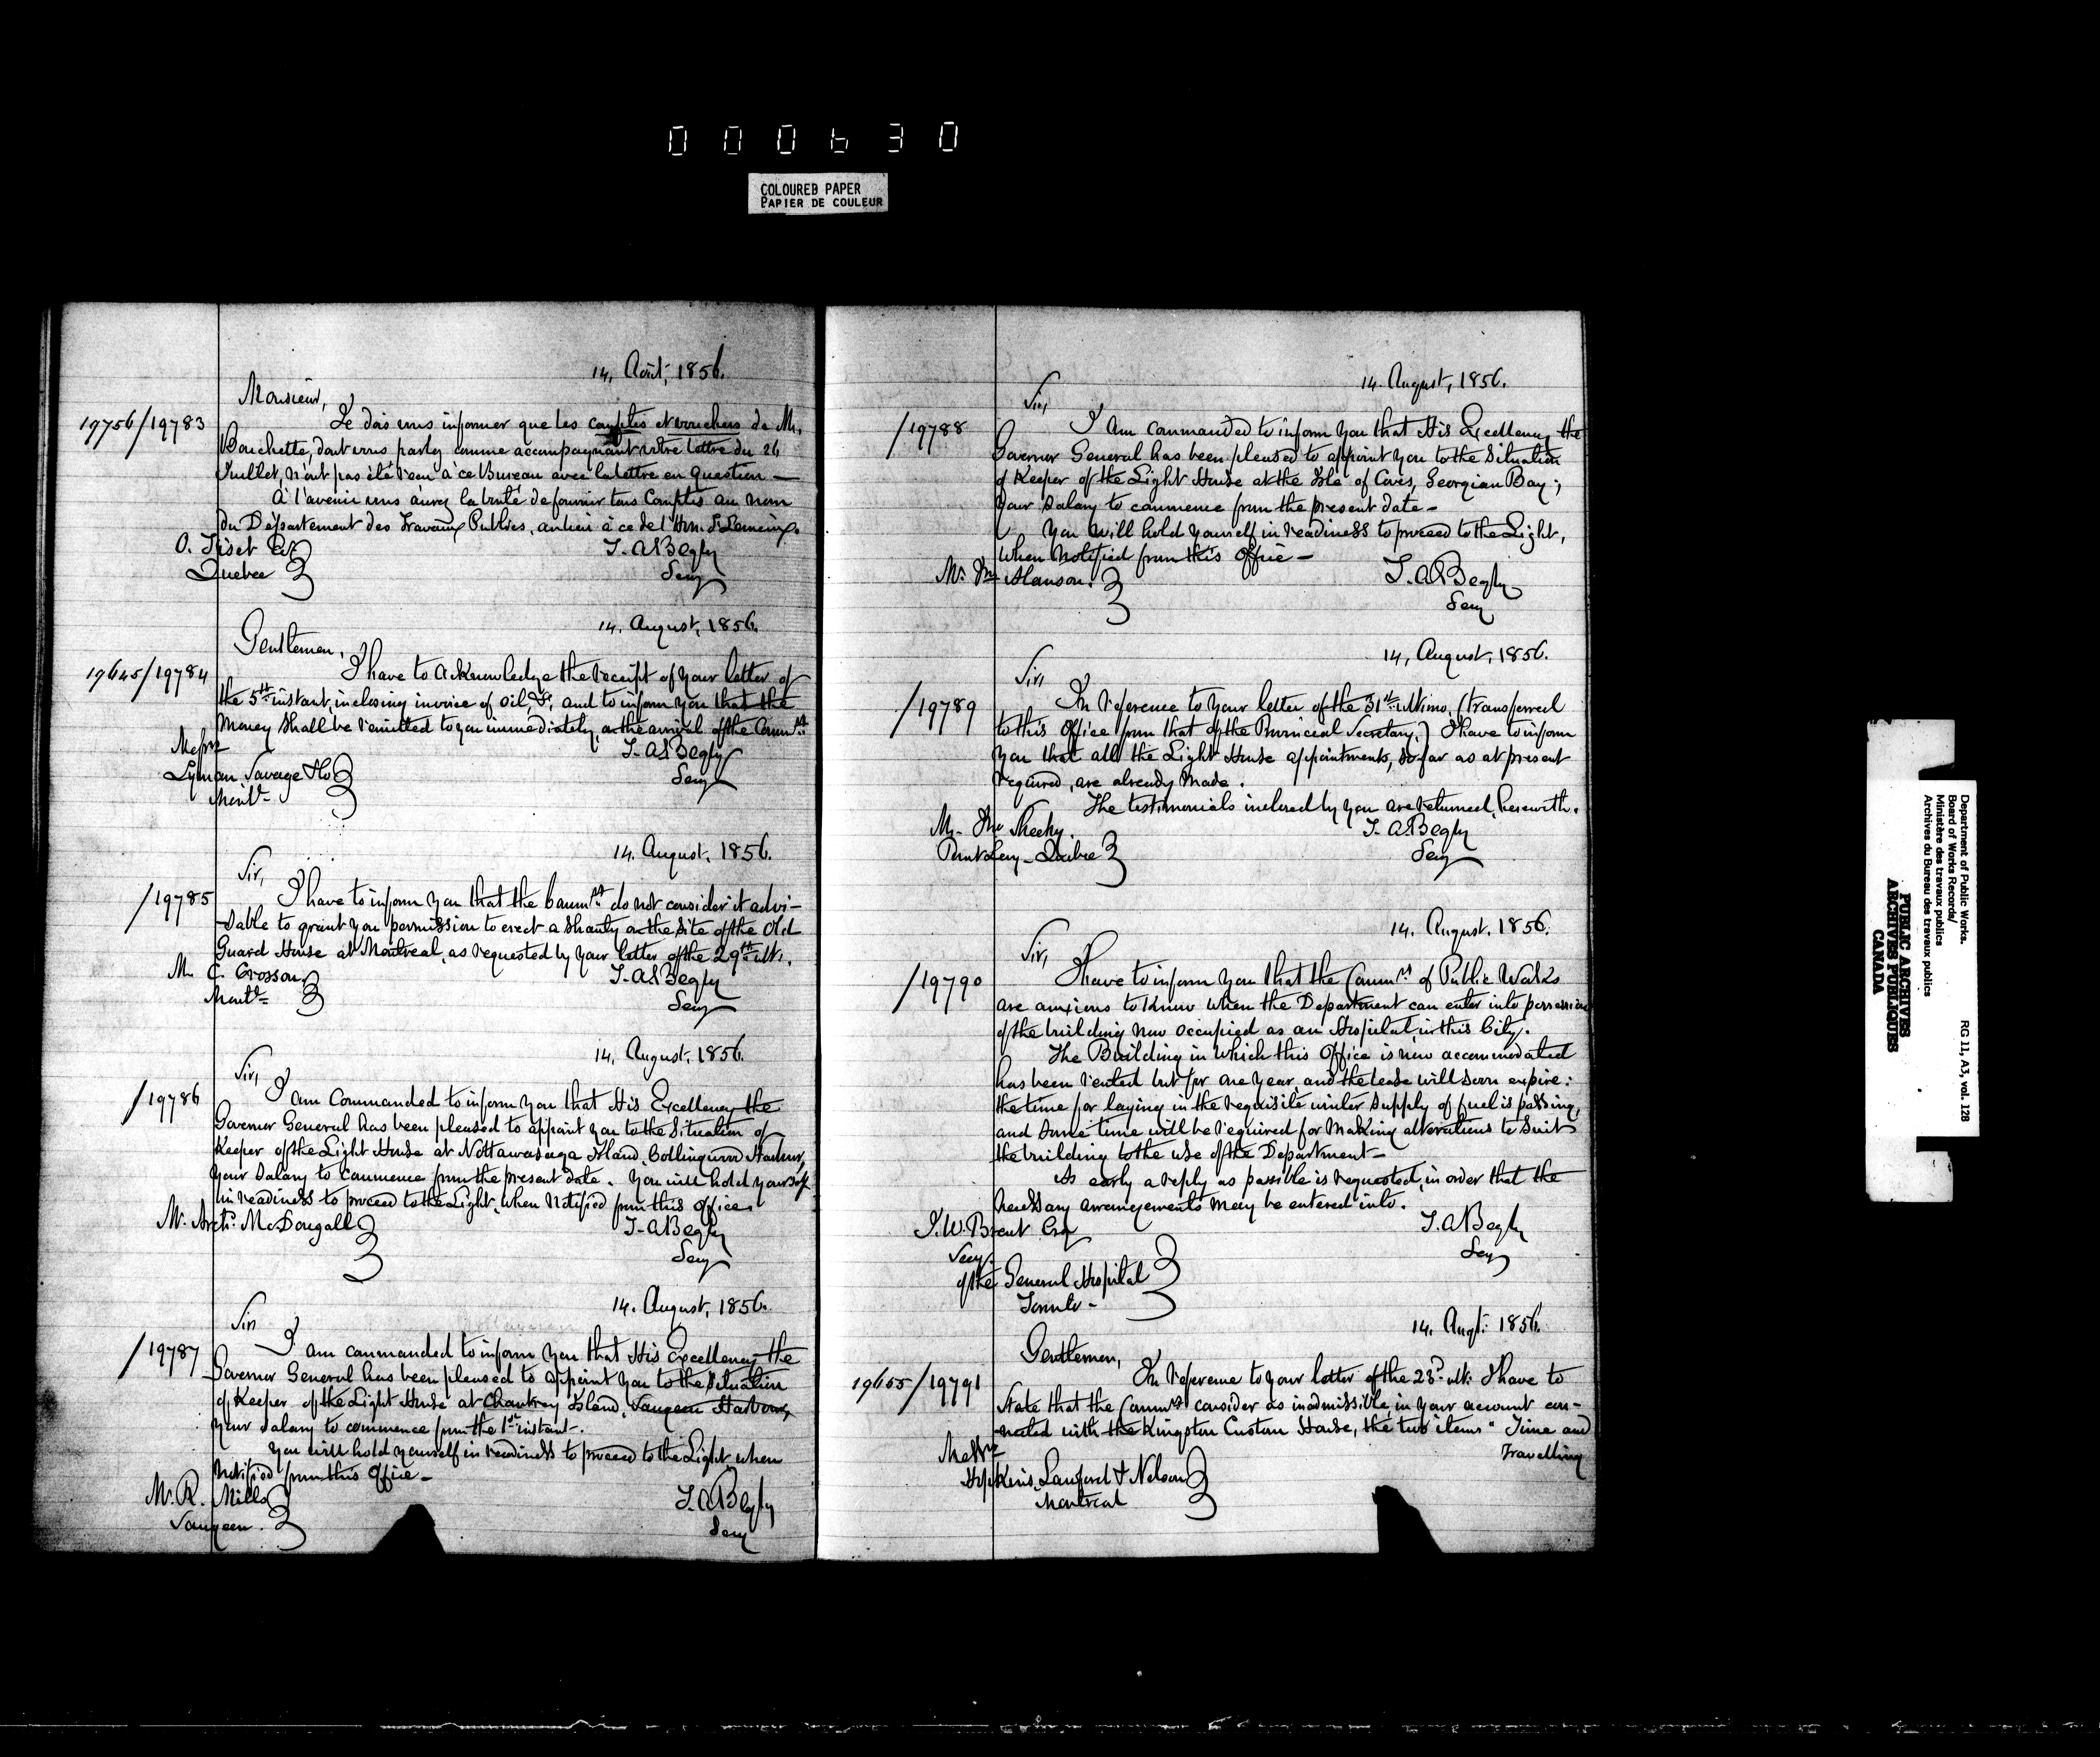 000630
COLOURED PAPER
PAPIER DE COULEUR
14, Août, 1856.
Monsieur,
19756/19783
Je dois vous informer que les comptes et vouchers de Mr.
Bouchette, dont vous parlez comme accompagnant votre lettre du 26
Juillet, n'ont pas été reçu à ce Bureau avec la lettre en question —
À l'avenir vous aurez la bonté de fournir tous Comptes au nom
du Département des Travaux Publics, au lieu à ce de l'Hon. F. Lemieux.
O. Fiset Esr
Quebec
T. A. Begly
Secy
14. August, 1856.
Gentlemen,
19645/19784
I have to acknowledge the receipt of your letter of
the 5th instant, inclosing invoice of oil, &c, and to inform you that the
money shall be remitted to you immediately, on the arrival of the Commrs
Messrs
Lyman Savage & Co
Montl-
T. A. Begly
Secy
14. August, 1856.
Sir,
/19785
I have to inform you that the Commrs do not consider it advi-
-sable to grant you permission to erect a Shanty on the site of the Old
Guard House at Montreal, as requested by your letter of the 29th ulto.
M. C. Crosson
Montl-
T. A. Begly
Secy
14, August, 1856.
Sir,
/19786
I am Commanded to inform you that His Excellency the
Governor General has been pleased to appoint you to the Situation of
Keeper of the Light House at Nottawasaga Island, Collingwood Harbour,
your Salary to commence from the present date. You will hold yourself
in readiness to proceed to the Light, when notified from this Office.
Mr. Archd. McDougall
T. A. Begly
Secy
14. August, 1856.
Sir
/19787
I am commanded to inform you that His Excellency the
Governor General has been pleased to appoint you to the Situation
of Keeper of the Light House at Chantrey Island, Saugeen Harbour,
your salary to commence from the 1st instant.
You will hold yourself in readiness to proceed to the Light, when
notified from this Office —
Mr. R. Mills
Saugeen.
T. A. Begly
Secy
14. August, 1856.
Sir,
/19788
I am commanded to inform you that His Excellency the
Governor General has been pleased to appoint you to the Situation
of Keeper of the Light House at the Isle of Coves, Georgian Bay;
your Salary to commence from the present date —
You will hold yourself in readiness to proceed to the Light,
when notified from this Office —
Mr. Hanson.
T. A. Begly
Secy
14, August, 1856.
Sir,
/19789
In reference to your letter of the 31st ultimo, (transferred
to this Office from that of the Provincial Secretary,) I have to inform
you that all the Light House appointments, so far as at present
required, are already made.
The testimonials inclosed by you are returned, herewith.
Mr. Jno Sheehy.
Point Levy - Quebec
T. A. Begly
Secy
14. August. 1856.
Sir,
/19790
I have to inform you that the Commrs of Public Works
are anxious to know when the Department can enter into possession
of the building now occupied as an Hospital, in this City.
The Building in which this Office is now accommodated
has been rented but for one year, and the lease will soon expire:
the time for laying in the requisite winter supply of fuel is passing,
and some time will be required for making alterations to suit
the building to the use of the Department —
As early a reply as possible is requested, in order that the
necessary arrangements may be entered into.
J. W. Brent Esq
Secy.
of the General Hospital
Toronto -
T. A. Begly
Secy
14. Augt. 1856.
Gentlemen,
19655/19791
In reference to your letter of the 23d ulto I have to
state that the Commrs consider as inadmissible, in your account con-
-nected with the Kingston Custom House, the two items "Time and
Travelling
Messrs
Hopkins, Lawford & Nelson
Montreal
Department of Public Works.
Board of Works Records/
Ministère des travaux publics
Archives du Bureau des travaux publics
RG 11, A3, vol. 128
PUBLIC ARCHIVES
ARCHIVES PUBLIQUES
CANADA